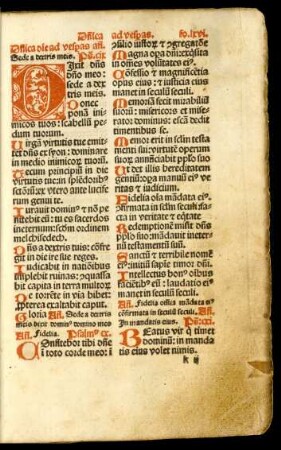 Dñica ad vespas. fo.lxvi.
Dñica die ad vespas añ.
Sede a dextris meis. Ps.cix
Dixit dñs
dño meo:
sede a dex
tris meis.
Donec
ponã ini
micos tuos: scabellũ pe
dum tuorum.
Uirgã virtutis tue emit
tet dñs ex syon: dominare
in medio inimicor̃ tuor̃.
Tecum principiũ in die
virtutis tue: in splẽdorib9
sctõrũ ex vtero ante lucife
rum genui te.
Iurauit domin9 ⁊ nõ pe
nitebit eũ: tu es sacerdos
ineternum: secdm ordinem
melchisedech.
Dñs a dextris tuis: cõfre
git in die ire sue reges.
Iudicabit in natiõibus
ĩplebit ruinas: ⁊quassa
bit capita in terra multor̃
De torẽte in via bibet:
ꝓpterea exaltabit caput.
Gloria Añ Sede a dextris
meis dixit domin9 domino meo
Añ. Fidelia. Psalm9 cx.
Confitebor tibi dñe
ĩ toto corde meo: ĩ
cõsilio iustor̃ ⁊ ɔgregatiõe
Magna opa dñi: exq̃sita
in omnes volũtates ei9.
Cõfessio ⁊ magnificẽtia
opus eius: ⁊ iusticia eius
manet in seculũ seculi.
Memoriã fecit mirabiliũ
suor̃: misericors ⁊ mise
rator dominus: escã dedit
timentibus se.
Memor erit in seclm testa
menti sui: virtutẽ operum
suor̃ annũciabit pplo suo
Ut det illis hereditatem
gentiũ: opa manuũ ei9 ve
ritas ⁊ iudicium.
Fidelia oĩa mãdata ei9:
cõfirmata in seclm seculi: fa
cta in veritate ⁊ eq̃tate
Redemptionẽ misit dñs
pplo suo: mãdauit ineter
nũ testamentũ suũ.
Sanctũ ⁊ terribile nomẽ
ei9: initiũ sapie timor dñi.
Intellectus bon9 oĩbus
faciẽtib9 eũ: laudatio ei9
manet in seculũ seculi.
Añ. Fidelia oĩa mãdata ei9
cõfirmata in seculũ seculi. Añ.
In mandatis eius. Ps.cxi.
Beatus vir q̃ timet
dominũ: in manda
tis eius volet nimis.
k ij